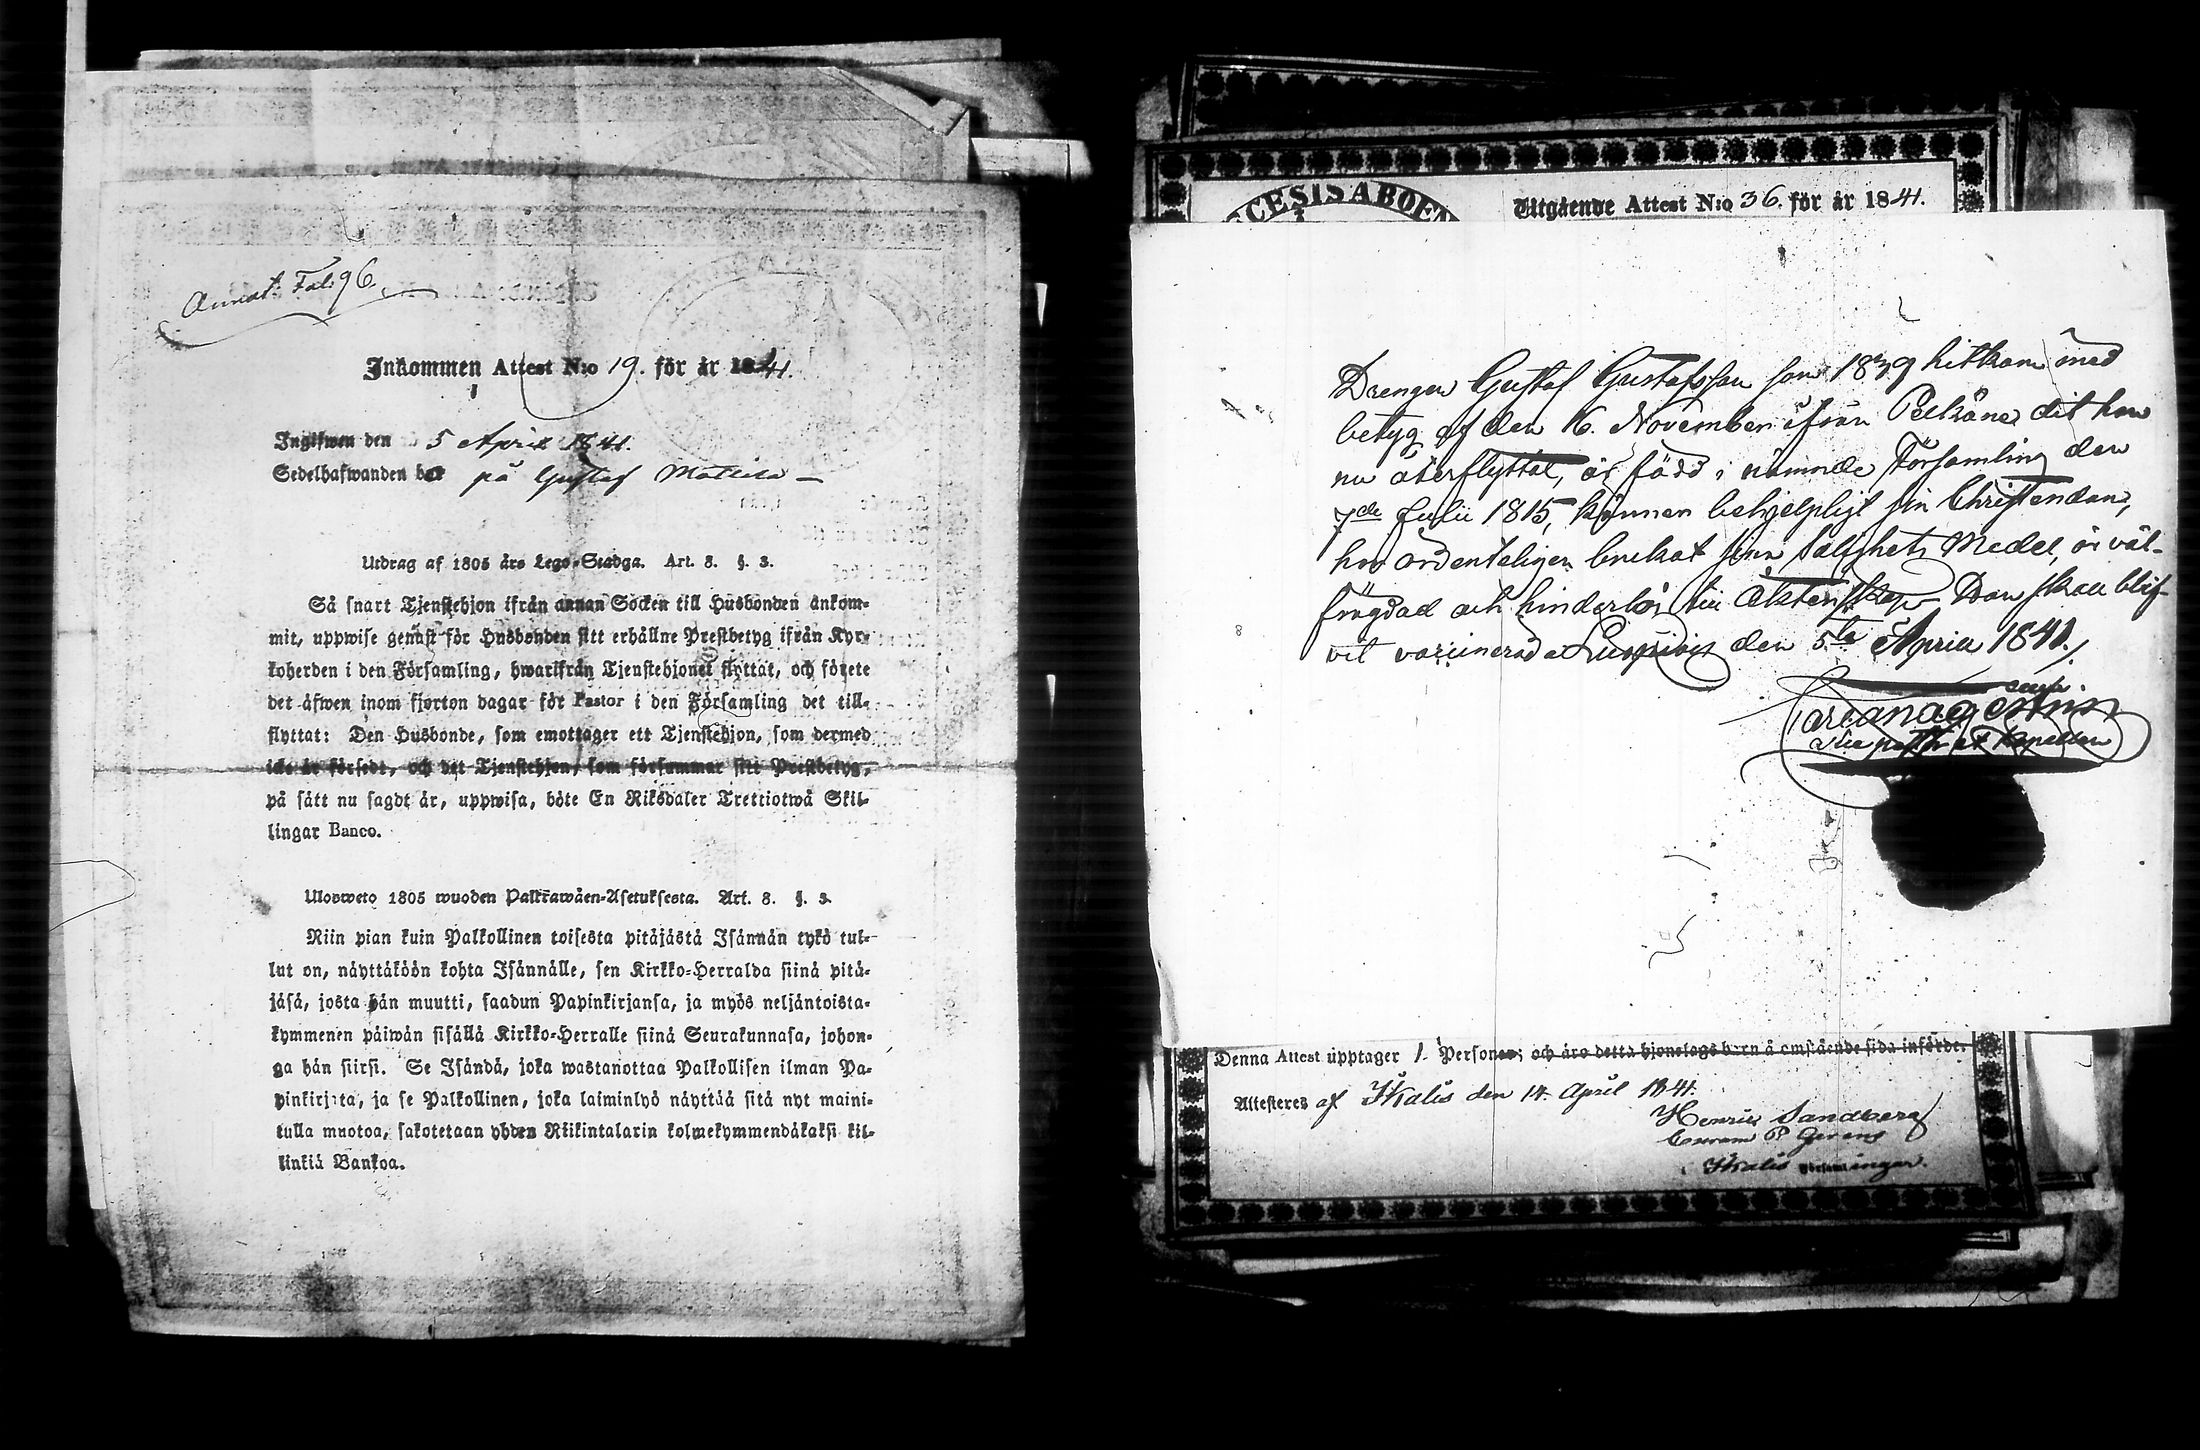 Annot: Fol. 96.
Inkommen Attest N:o 19. för år 1841.
Ingifwen den 5 April 1841.
Sedelhafwanden bor på Gustaf Mattila
Utdrag af 1805 års Lego-Stadga. Art. 8. §. 3.
Så snart Tjenstehjon ifrån annan Socken till Husbonden ankom-
mit, uppwise genast för Husbonden sitt erhållne Prestbetyg ifrån Kyr-
koherden i den Församling, hwarifrån Tjenstehjonet flyttat, och förete
det äfwen inom fjorton dagar för Pastor i den Församling det till-
flyttat: Den Husbonde, som emottager ett Tjenstehjon, som dermed
icke är försedt, och det Tjenstehjon, som försummar sitt Prestbetyg,
på sätt nu sagdt är, uppwisa, böte En Riksdaler Trettiotwå Skil-
lingar Banco.
Ulosweto 1805 wuoden Palkkawäen-Asetuksesta. Art. 8. §. 3.
Niin pian kuin Palkollinen toisesta pitäjästä Isännän tykö tul-
lut on, näyttäköön kohta Isännälle, sen Kirkko-Herralda siinä pitä-
jäsä, josta hän muutti, saadun Papinkirjansa, ja myös neljäntoista-
kymmenen päiwän sisällä Kirkko-Herralle siinä Seurakunnasa, johon-
ga hän siirsi. Se Isändä, joka wastanottaa Palkollisen ilman Pa-
pinkirjata, ja se Palkollinen, joka laiminlyö näyttää sitä nyt maini-
tulla muotoa, sakotetaan yhden Riikintalarin kolmekymmendäkaksi kil-
linkiä Bankoa.
CESIS ABOEN
Utgående Attest N:o 36. för år 1841.
Drengen Gustaf Gustafsson som 1839 hitkom med
betyg af den 16. November ifrån Pelkäne dit han
nu återflyttat, är född i nämnde Församling den
7de Julii 1815, känner behjelpligt sin Christendom,
har ordenteligen brukat sina Salighets Medel, är väl-
frägdad och hinderlös till Äktenskap. Don skall blif-
vit vaccinerad den 5te April 1841.
Denna Attest upptager 1. Personer; och äro detta hjonelags barn å omstående sida införde.
Attesteres af Ikalis den 14. April 1841.
Henric Sandberg
i Ikalis Församlingar.